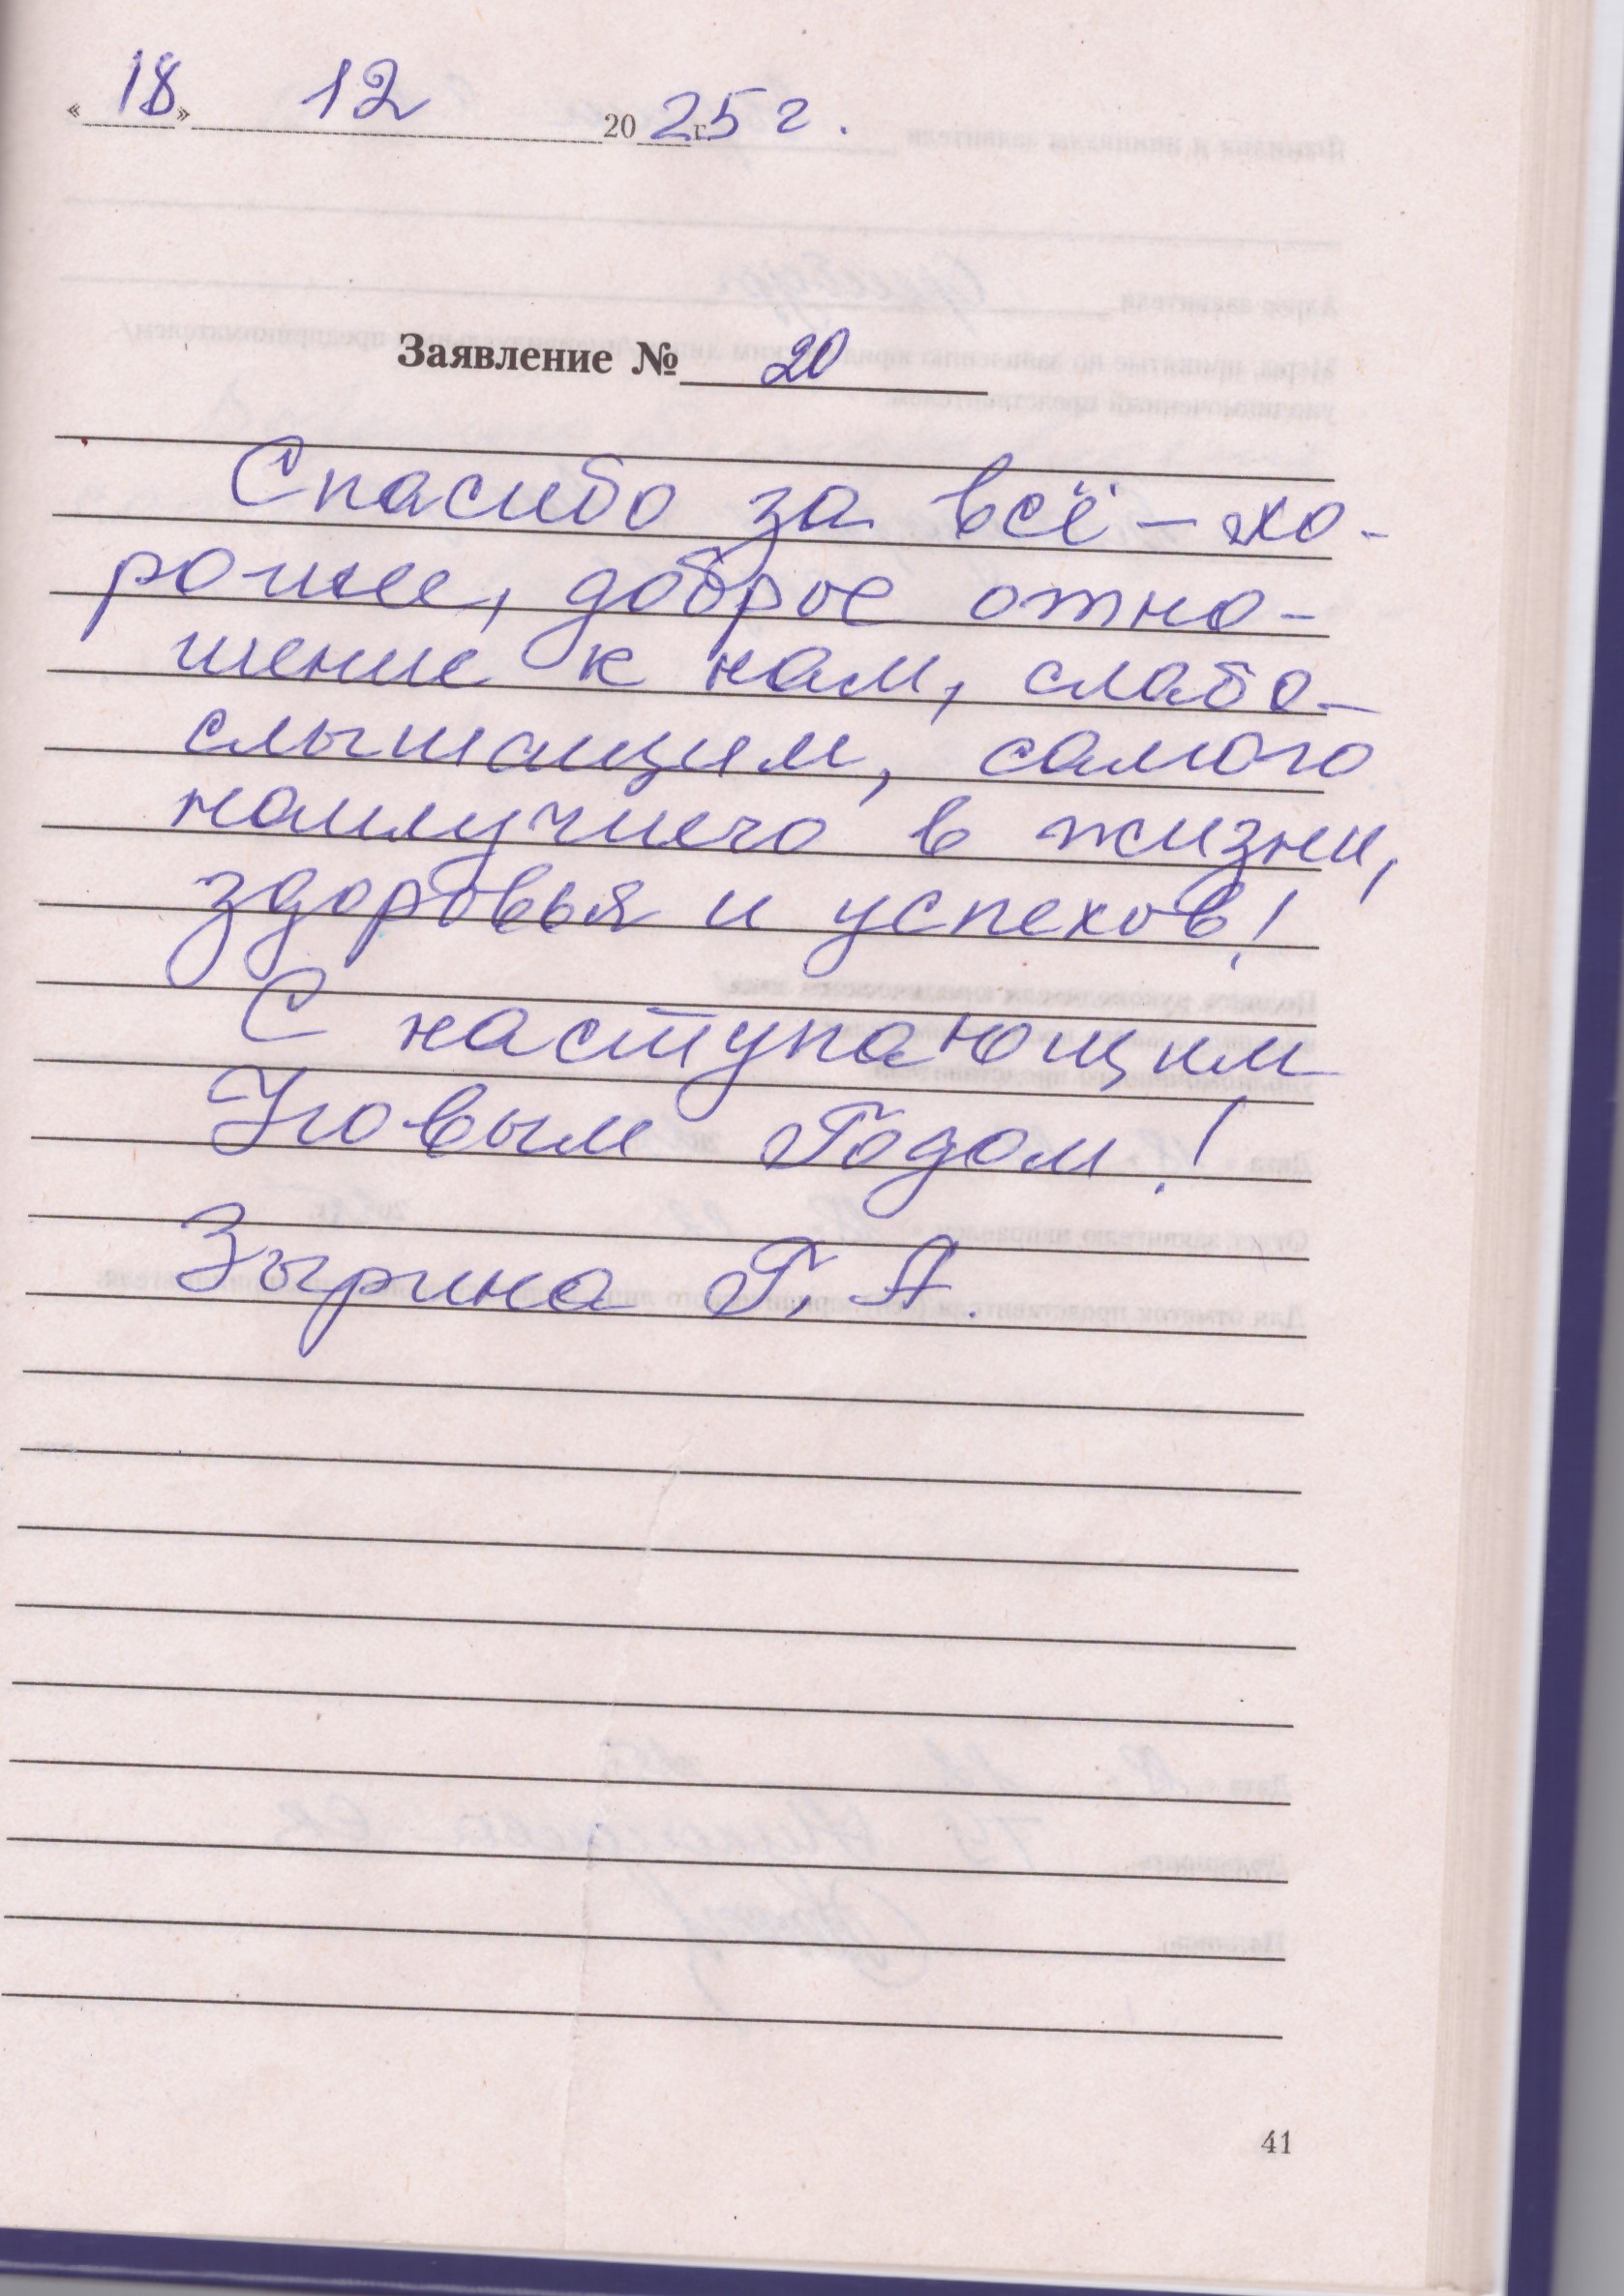 «18» 12 2025 г.
Заявление № 20
Спасибо за всё – хо-
рошее, доброе отно-
шение к нам, слабо-
слышащим, самого
наилучшего в жизни,
здоровья и успехов!
С наступающим
Новым Годом!
Зырина Г. А.
41